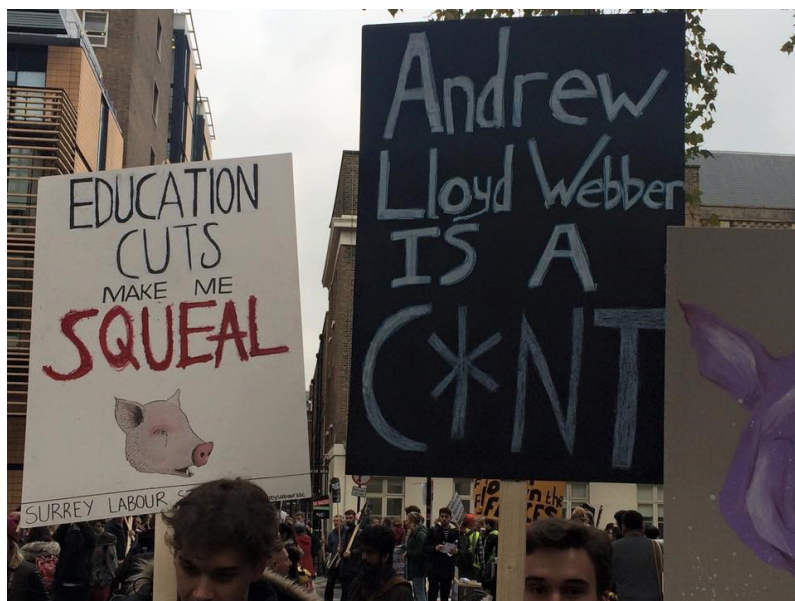 EDUCATION
CUTS
MAKE ME
SQUEAL
SURREY LABOUR
Andrew
Lloyd Webber
IS A
C*NT
the